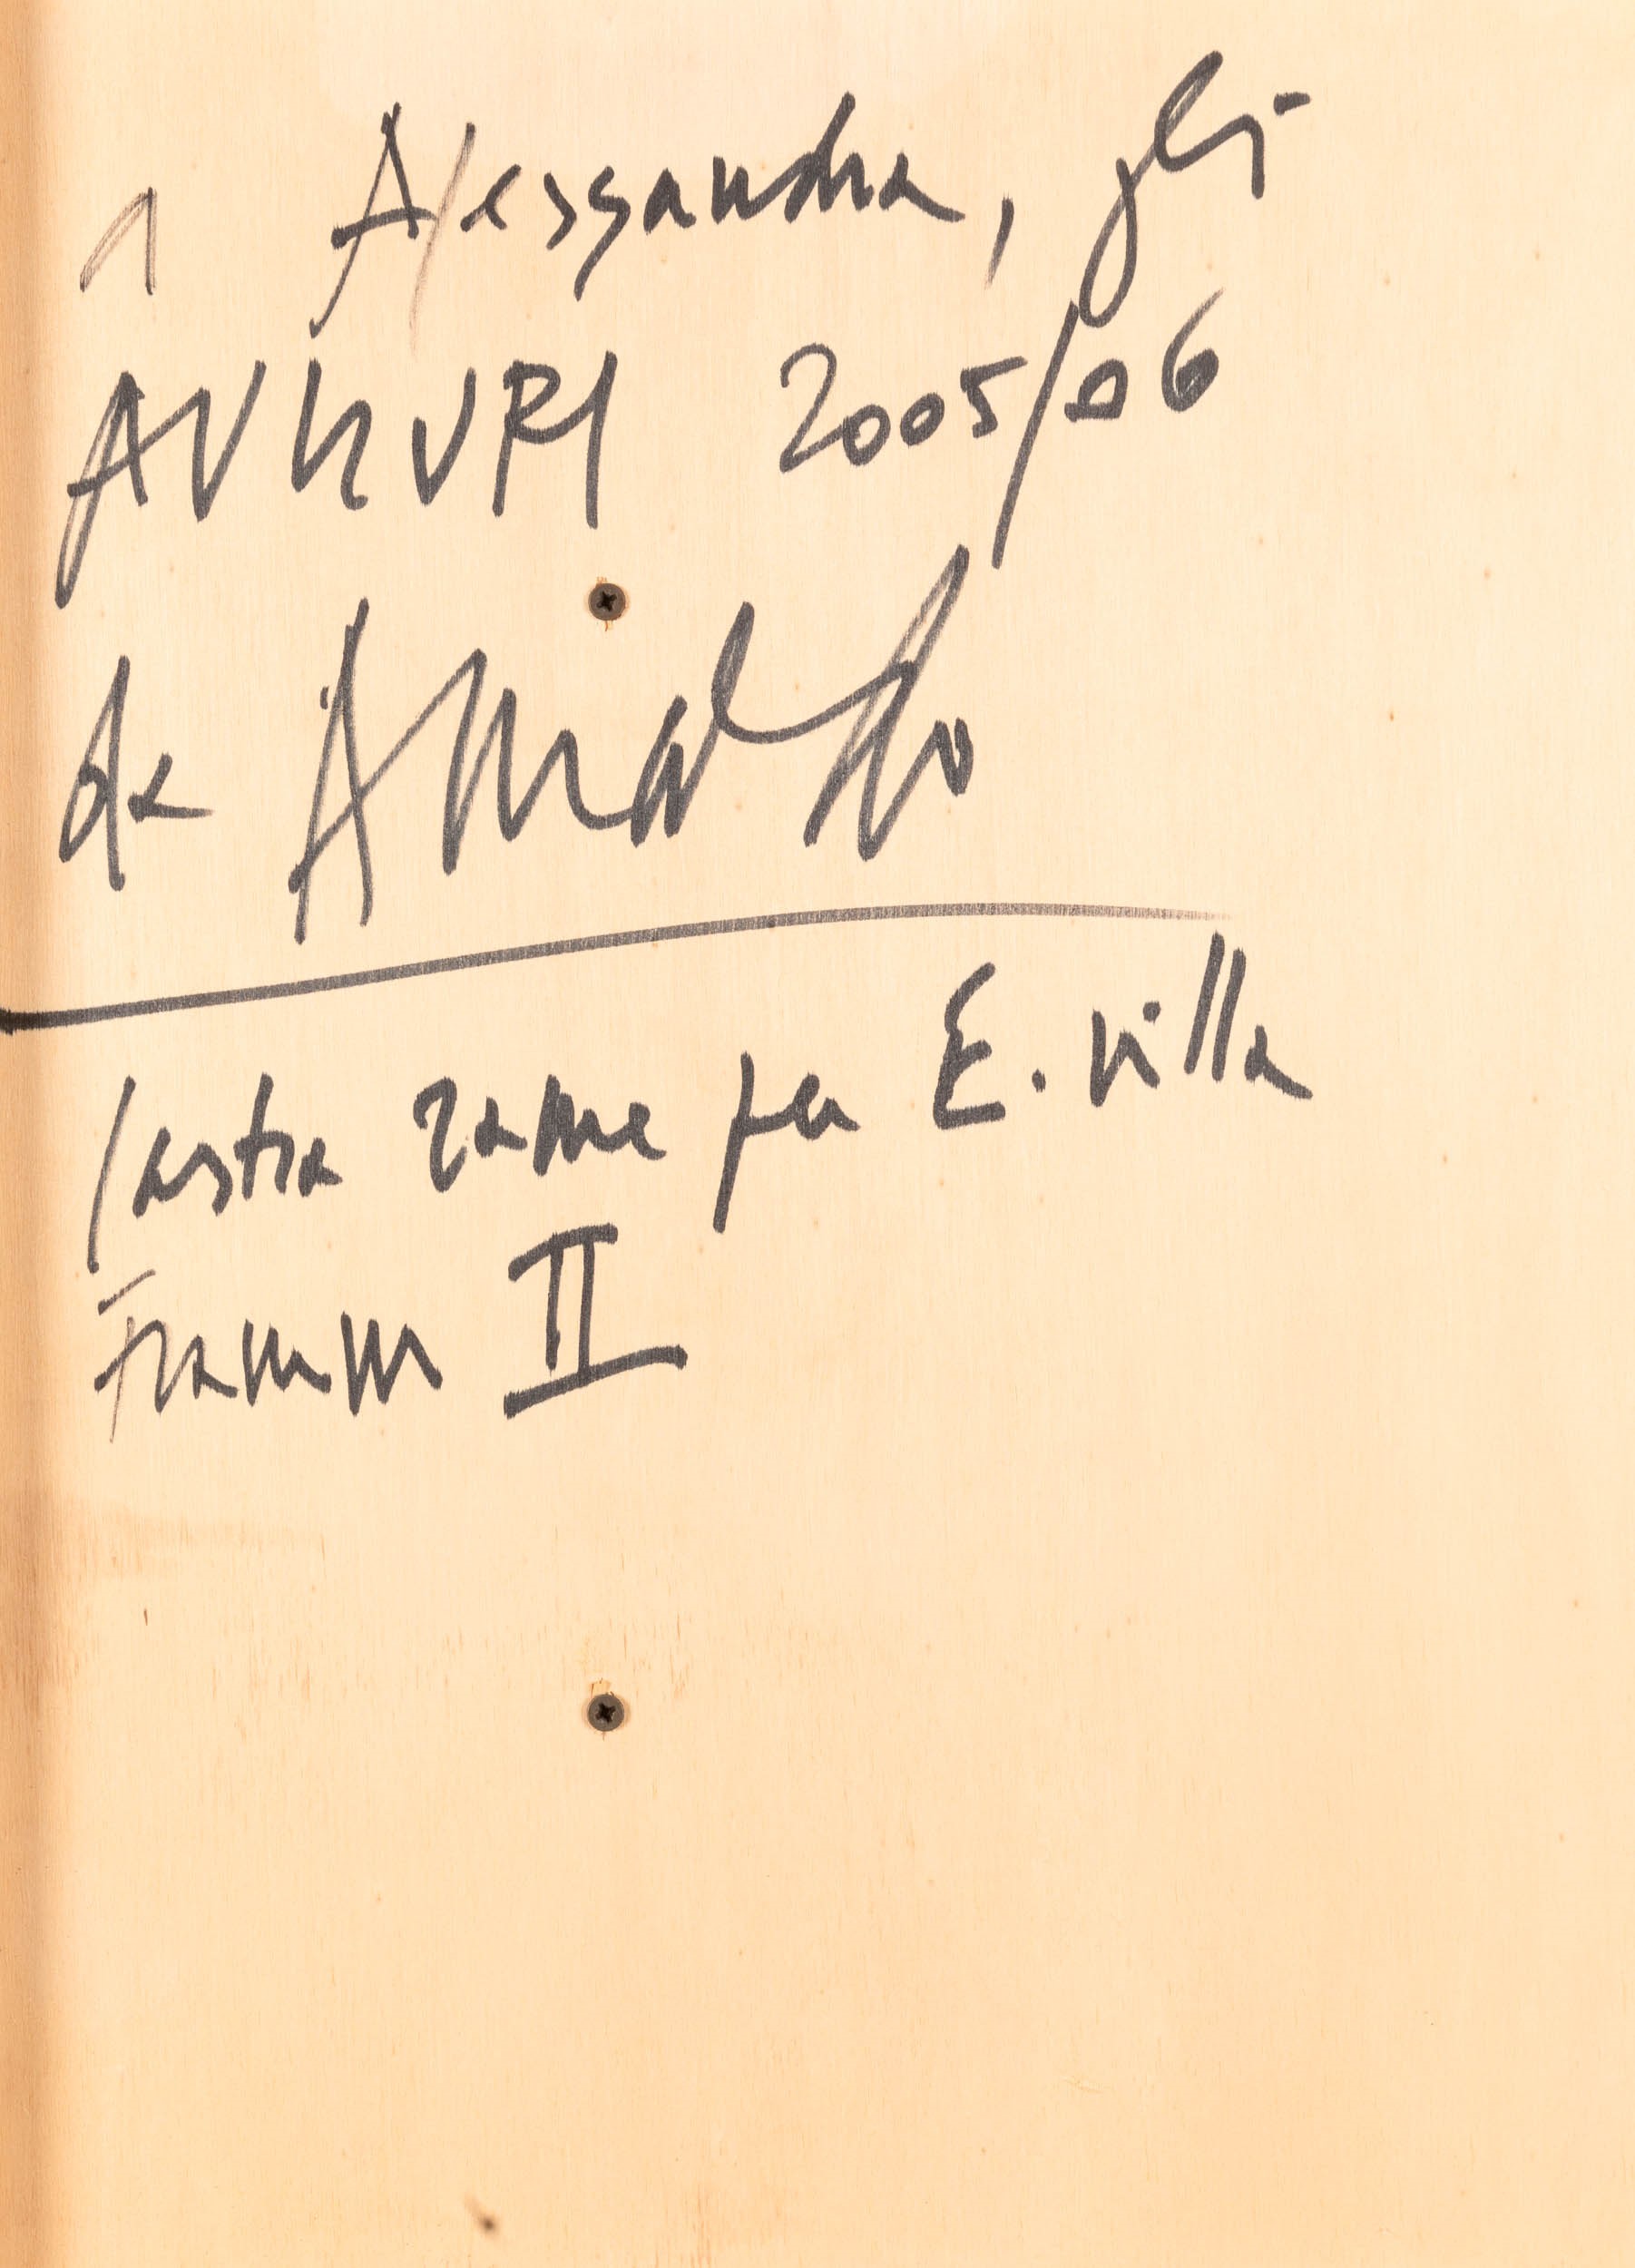 A Alessandra, gli
AUGURI 2005/06
da Arnaldo
lastra rame per E. Villa
Framm II